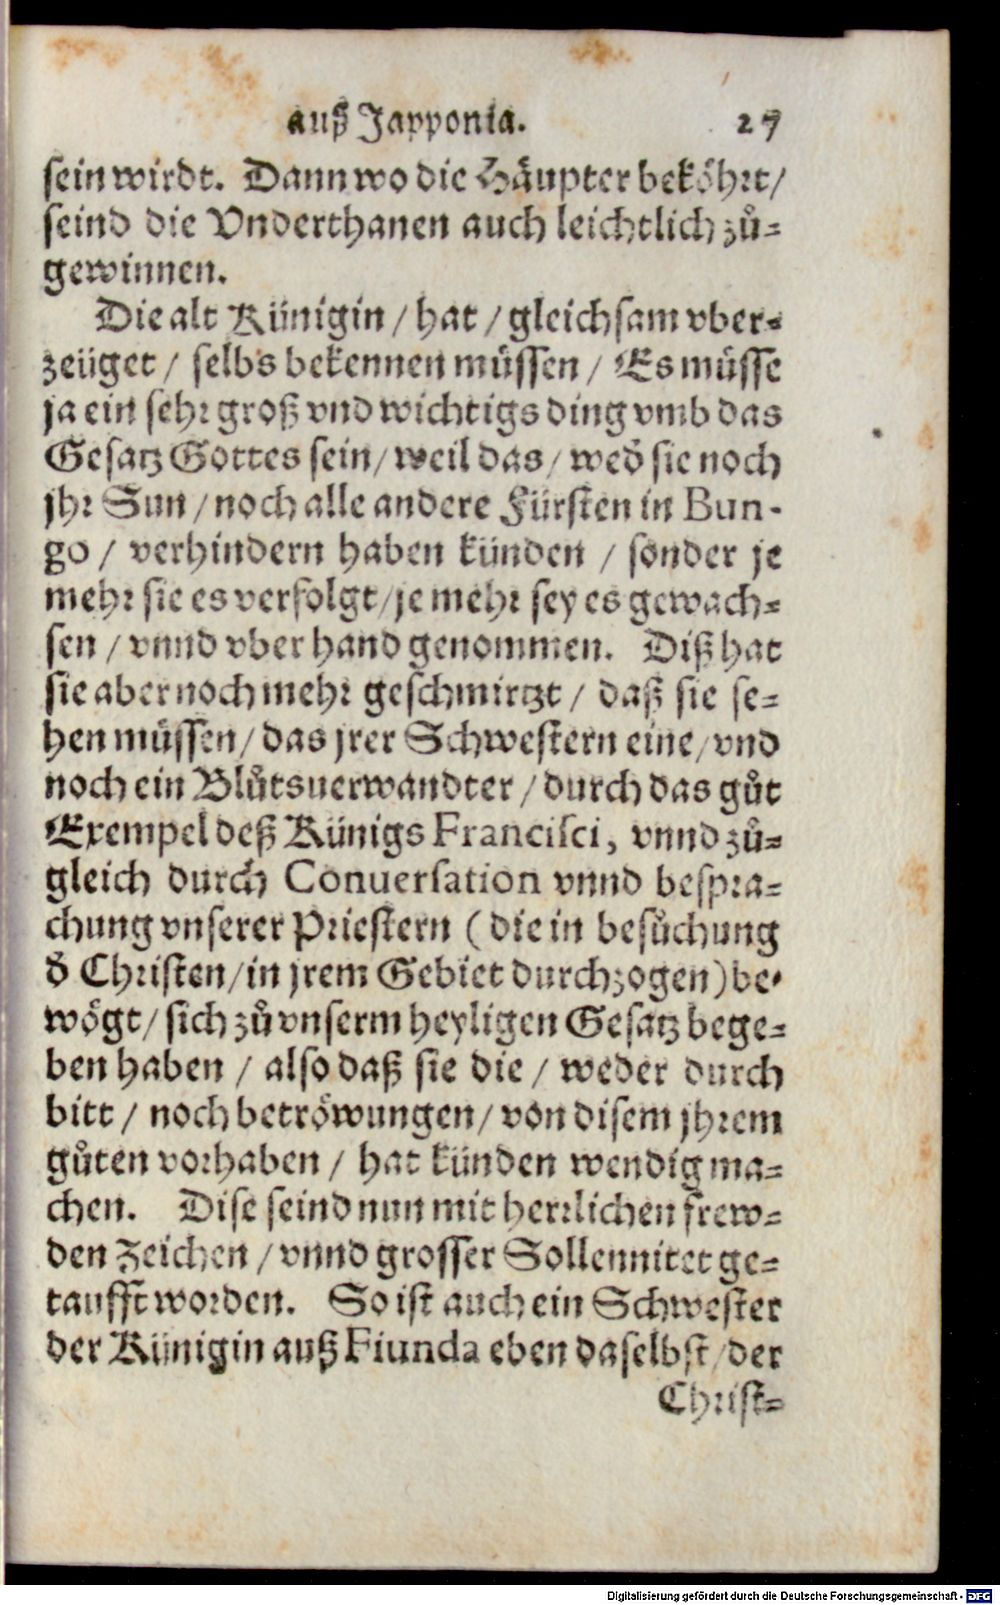 auß Japponia. 27
sein wirdt. Dann wo die Häupter beköhrt/
seind die Vnderthanen auch leichtlich zů-
gewinnen.
Die alt Künigin / hat / gleichsam vber-
zeüget / selbs bekennen müssen / Es müsse
ja ein sehr groß vnd wichtigs ding vmb das
Gesatz Gottes sein/ weil das/ wed̄ sie noch
jhr Sun / noch alle andere Fürsten in Bun-
go / verhindern haben künden / sonder je
mehr sie es verfolgt/ je mehr sey es gewach-
sen / vnnd vber hand genommen. Diß hat
sie aber noch mehr geschmirtzt / daß sie se-
hen müssen/ das jrer Schwestern eine/ vnd
noch ein Blůtsuerwandter / durch das gůt
Exempel deß Künigs Francisci, vnnd zů-
gleich durch Conuersation vnnd bespra-
chung vnserer Priestern ( die in besůchung
d̄ Christen/ in jrem Gebiet durchzogen) be-
wögt/ sich zů vnserm heyligen Gesatz bege-
ben haben / also daß sie die / weder durch
bitt / noch betröwungen/ von disem jhrem
gůten vorhaben / hat künden wendig ma-
chen. Dise seind nun mit herrlichen frew-
den Zeichen / vnnd grosser Sollennitet ge-
taufft worden. So ist auch ein Schwester
der Künigin auß Fiunda eben daselbst/ der
Christ-
Digitalisierung gefördert durch die Deutsche Forschungsgemeinschaft - DFG